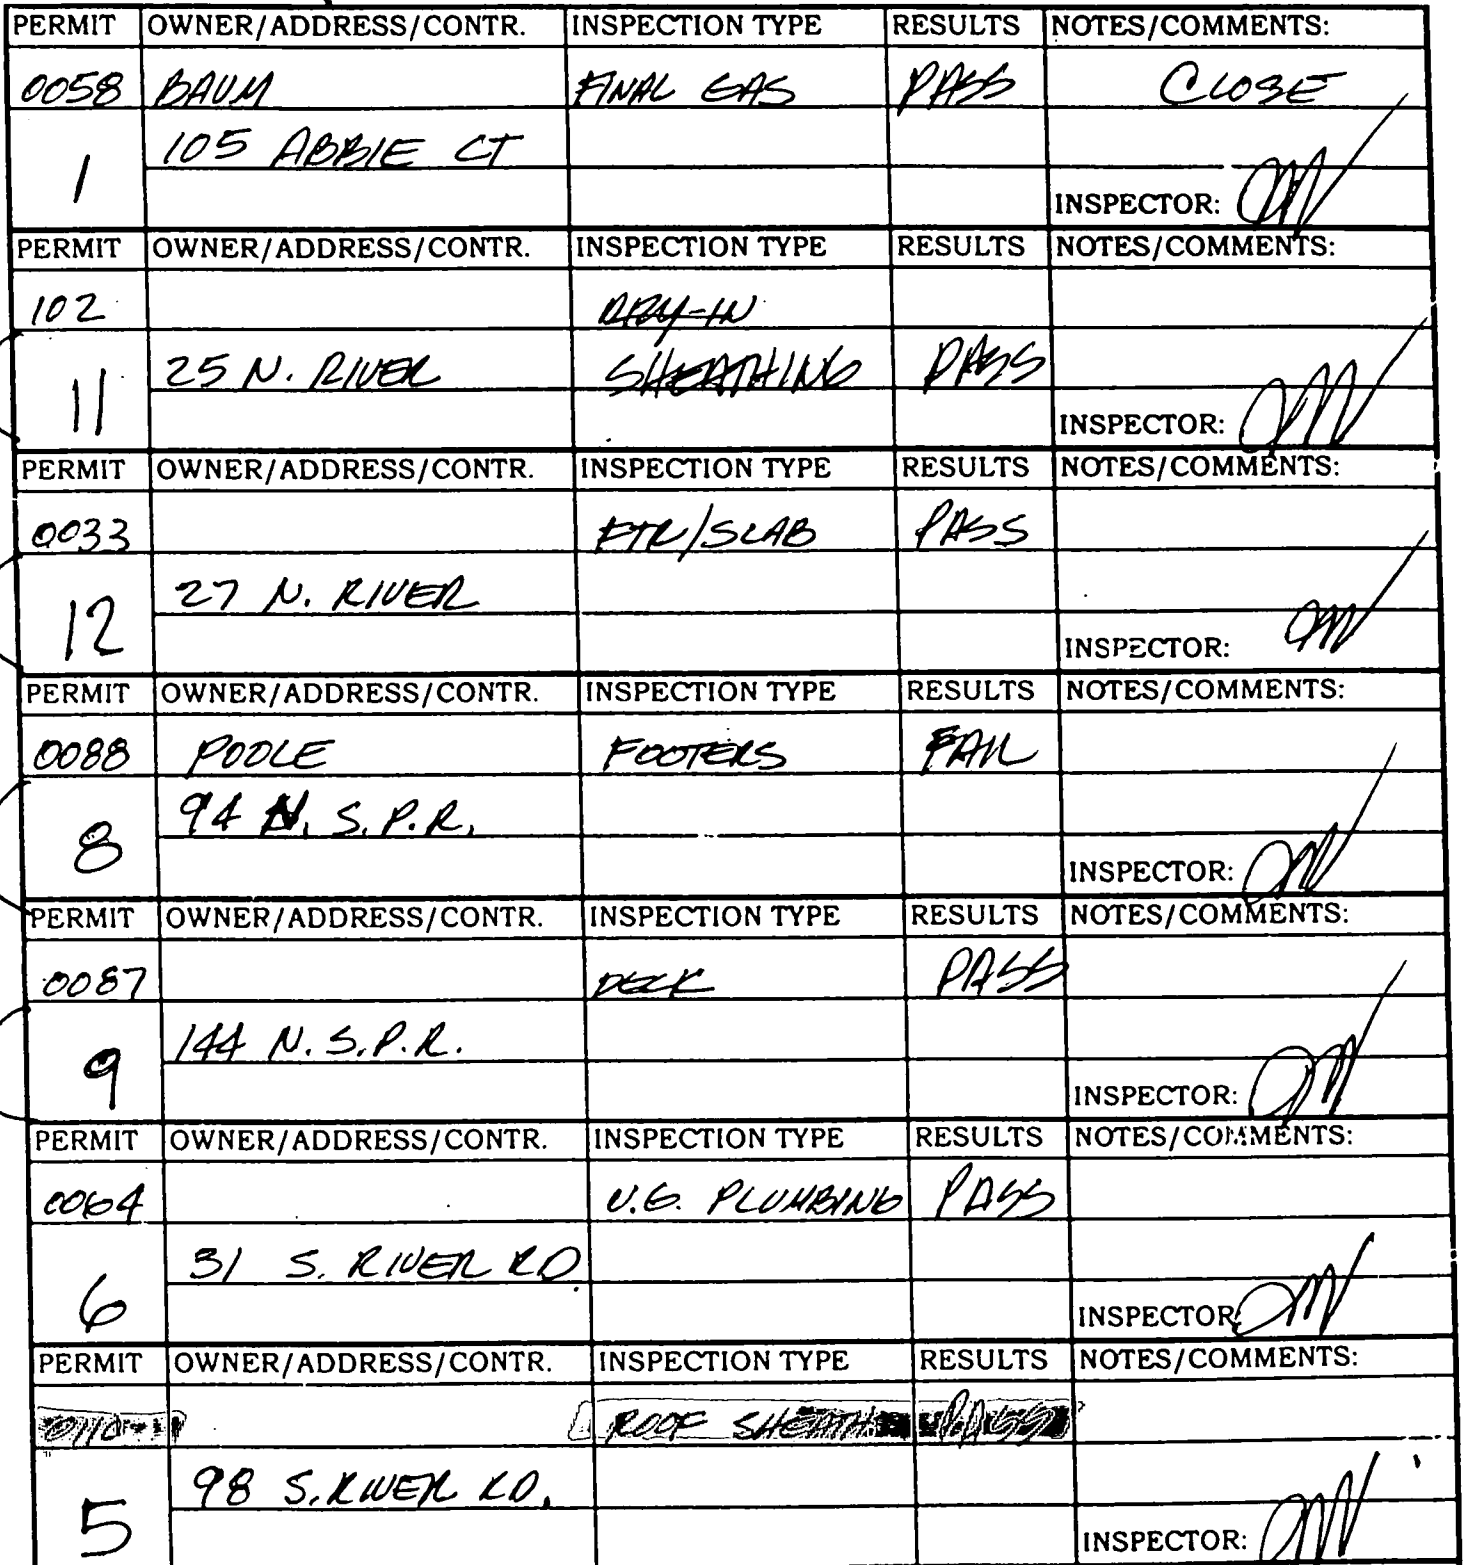 PERMIT OWNER/ADDRESS/CONTR. INSPECTION TYPE RESULTS NOTES/COMMENTS:
0058 BAUM FINAL GAS PASS CLOSE
105 ABBIE CT
1 INSPECTOR:
PERMIT OWNER/ADDRESS/CONTR. INSPECTION TYPE RESULTS NOTES/COMMENTS:
102 DRY-IN
25 N. RIVER SHEATHING PASS
11 INSPECTOR:
PERMIT OWNER/ADDRESS/CONTR. INSPECTION TYPE RESULTS NOTES/COMMENTS:
0033 FTR/SLAB PASS
27 N. RIVER
12 INSPECTOR:
PERMIT OWNER/ADDRESS/CONTR. INSPECTION TYPE RESULTS NOTES/COMMENTS:
0088 POOLE FOOTERS FAIL
94 N. S.P.R.
8 INSPECTOR:
PERMIT OWNER/ADDRESS/CONTR. INSPECTION TYPE RESULTS NOTES/COMMENTS:
0087 DECK PASS
144 N. S.P.R.
9 INSPECTOR:
PERMIT OWNER/ADDRESS/CONTR. INSPECTION TYPE RESULTS NOTES/COMMENTS:
0064 U.G. PLUMBING PASS
31 S. RIVER RD
6 INSPECTOR:
PERMIT OWNER/ADDRESS/CONTR. INSPECTION TYPE RESULTS NOTES/COMMENTS:
ROOF SHEATH PASS
98 S. RIVER RD.
5 INSPECTOR: